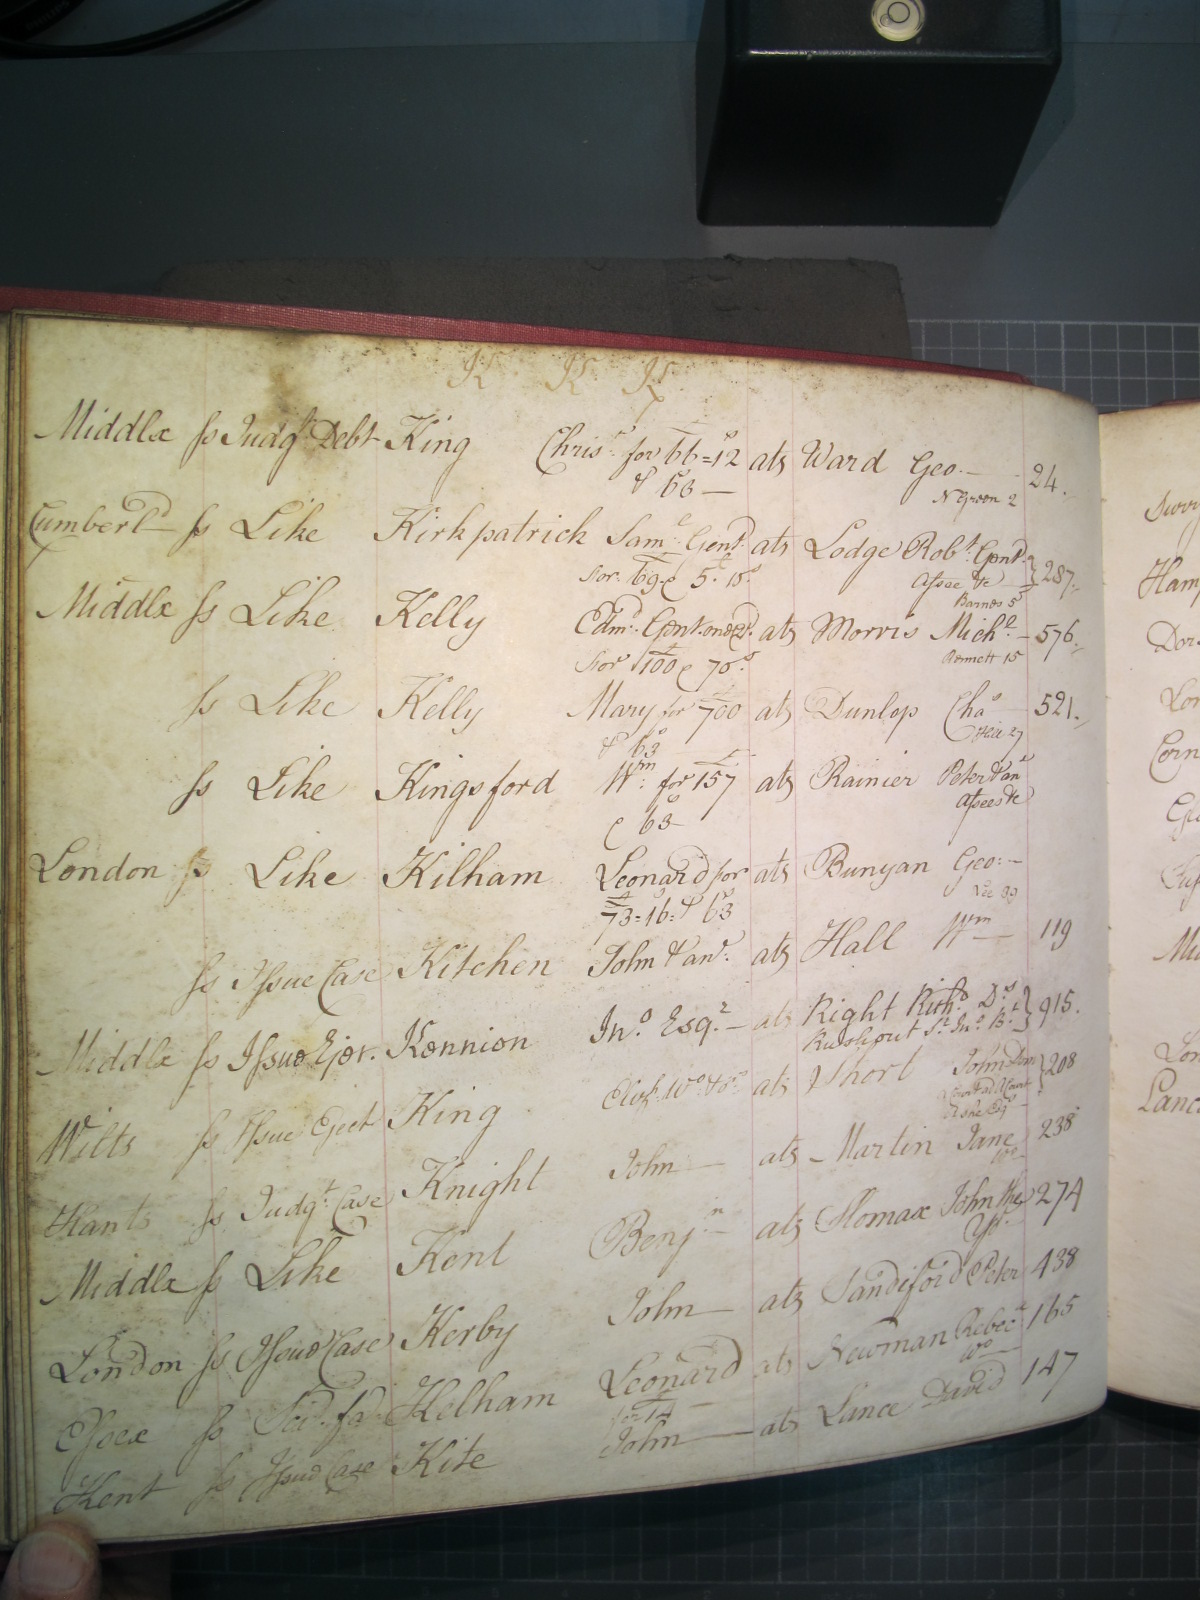 K K K
Middlx ss Judgt Debt King Chrisr for 66=12 ats Ward Geo. 24.
& 63 N Green 2
Cumberld ss Like Kirkpatrick Saml Gent ats Lodge Robt Gent 287
for 69 & 5. 15s Assee &c
Barnes 5
Middlx ss Like Kelly Edmd Gent one &c ats Morris Michl 576
for 100 & 70s Bennett 15
ss Like Kelly Mary for 700 ats Dunlop Chas 521.
& 63
ss Like Kingsford Wm for 157 ats Rainier Peter & anr
& 63 Assees &c
London ss Like Kilham Leonard for ats Bunyan Geo:
73=16= & 63
ss Issue Case Kitchen John & anr ats Hall Wm 119
Middlx ss Issue Ejec. Kennion Jno Esqr ats Right Richd Ds 915.
St Jno Bt
Wilts ss Issue Eject King Elizh Wo ats Short John Dem 208
Hants ss Judgt Case Knight John ats Martin Jane 238
Wo
Middlx ss Like Kent Benjn ats Slomax John the 274
Yr
London ss Issue Case Kerby John ats Sandiford Peter 438
Essex ss Sci. fa. Kelham Leonard ats Newman Rebeca 165
for 14 Wo
Kent ss Issue Case Kite John ats Lance David 147